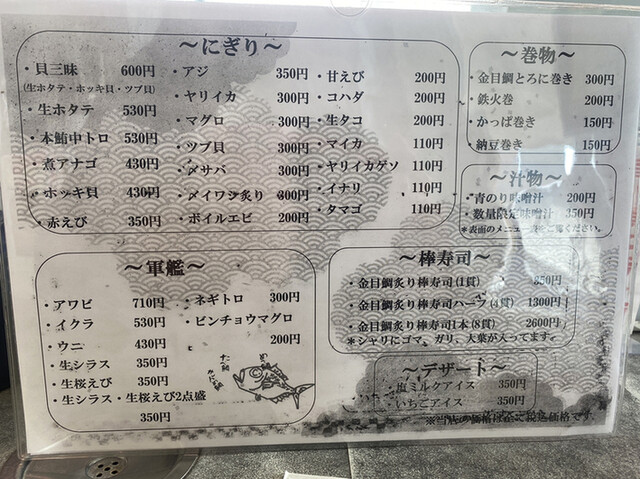 ～にぎり～
・貝三昧 600円
(生ホタテ・ホッキ貝・ツブ貝)
・生ホタテ 530円
・本鮪中トロ 530円
・煮アナゴ 430円
・ホッキ貝 430円
・赤えび 350円
・アジ 350円
・ヤリイカ 300円
・マグロ 300円
・ツブ貝 300円
・〆サバ 300円
・メイワシ炙り 300円
・ボイルエビ 200円
・甘えび 200円
・コハダ 200円
・生タコ 200円
・マイカ 110円
・ヤリイカゲソ 110円
・イナリ 110円
・タマゴ 110円
～巻物～
・金目鯛とろに巻き 300円
・鉄火巻 200円
・かっぱ巻き 150円
・納豆巻き 150円
～汁物～
・青のり味噌汁 200円
・数量限定味噌汁 350円
＊表面のメニュー表をご覧ください。
～軍艦～
・アワビ 710円
・イクラ 530円
・ウニ 430円
・生シラス 350円
・生桜えび 350円
・生シラス・生桜えび2点盛
350円
・ネギトロ 300円
・ビンチョウマグロ
200円
～棒寿司～
・金目鯛炙り棒寿司(1貫) 350円
・金目鯛炙り棒寿司ハーフ(4貫) 1300円
・金目鯛炙り棒寿司1本(8貫) 2600円
＊シャリにゴマ、ガリ、大葉が入ってます。
～デザート～
・塩ミルクアイス 350円
・いちごアイス 350円
※当店の価格は全て税込価格です。